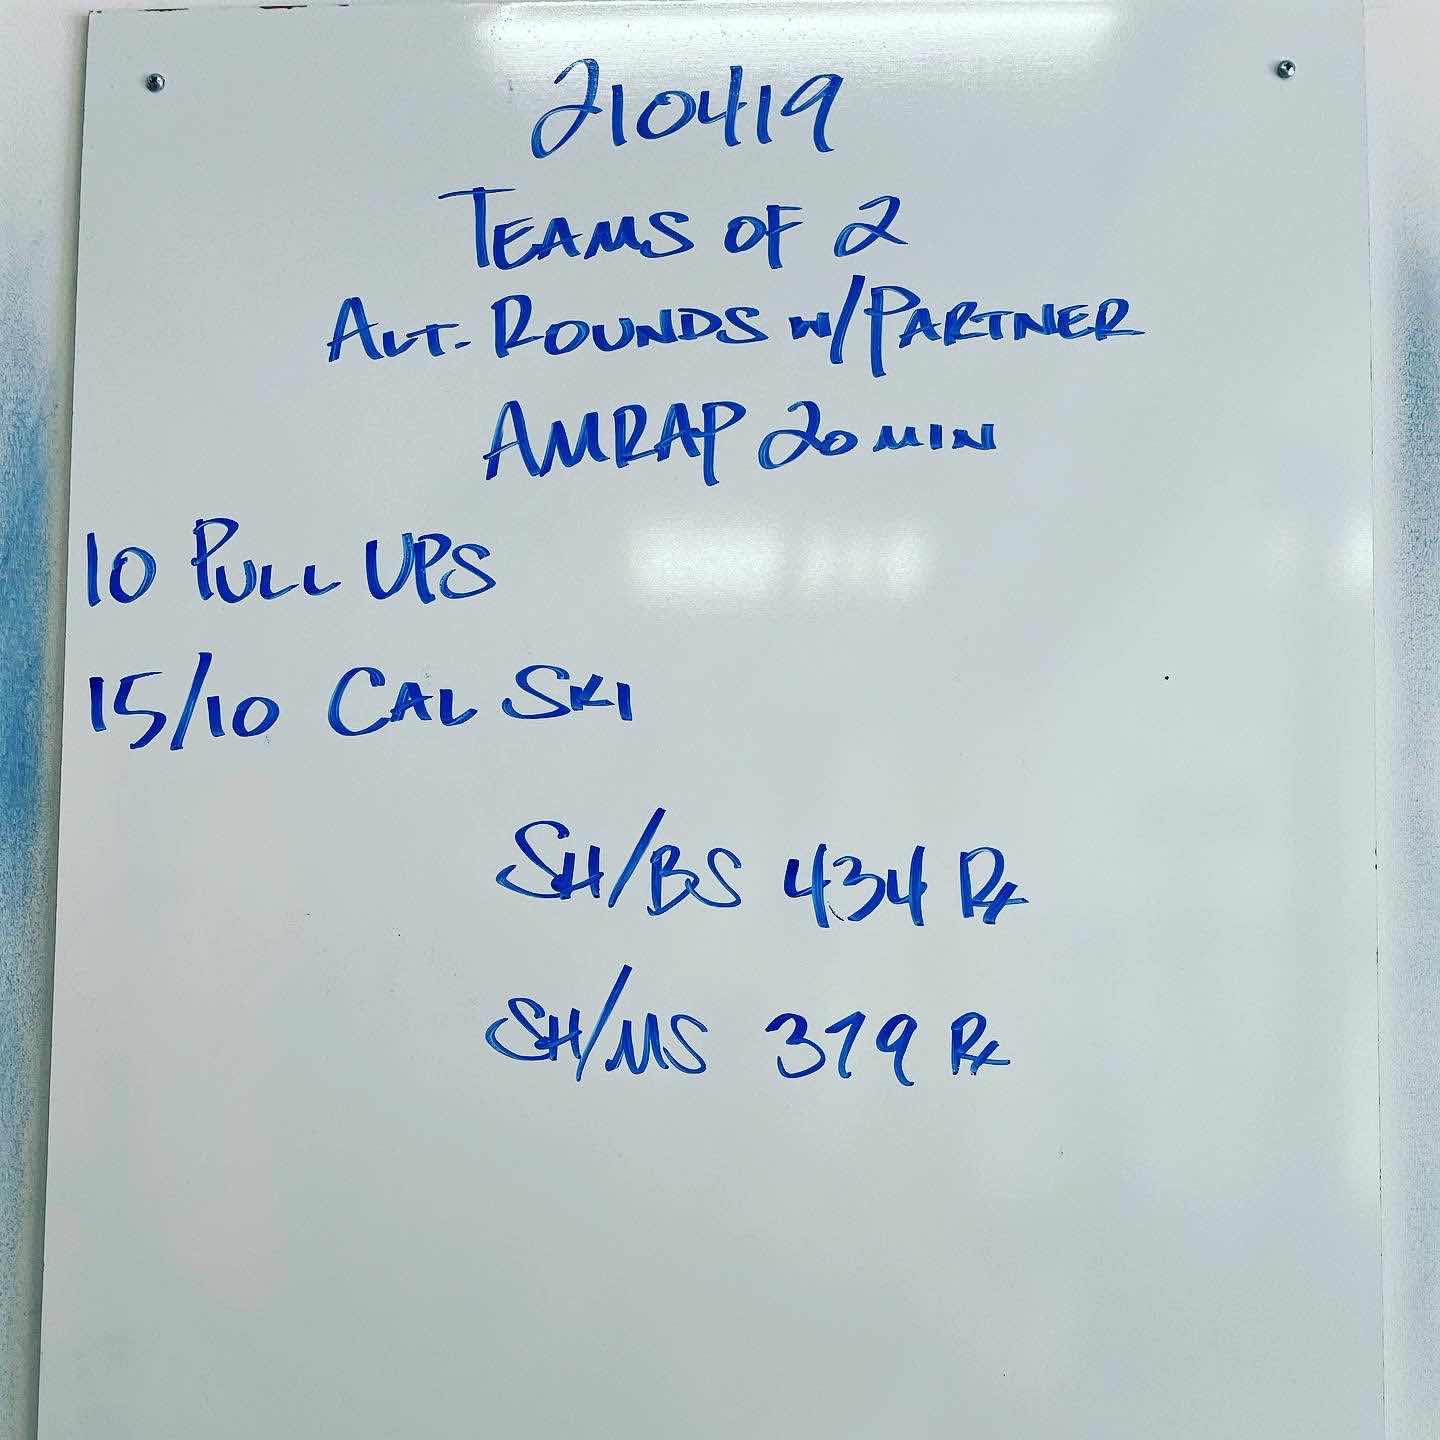 210419
TEAMS OF 2
ALT. ROUNDS W/PARTNER
AMRAP 20 MIN
10 PULL UPS
15/10 CAL SKI
SH/BS 434 Rx
SH/MS 379 Rx